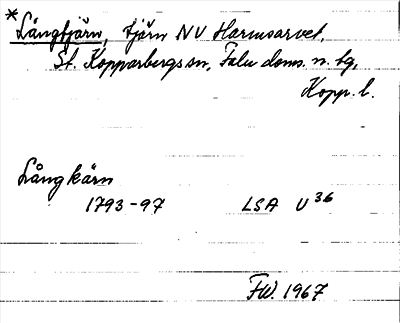 * Långtjärn, tjärn NV Harmsarvet,
St. Kopparbergs sn, Falu doms. n. tg,
Kopp. l.
Långkärn
1793-97 LSA U 36
FW. 1967